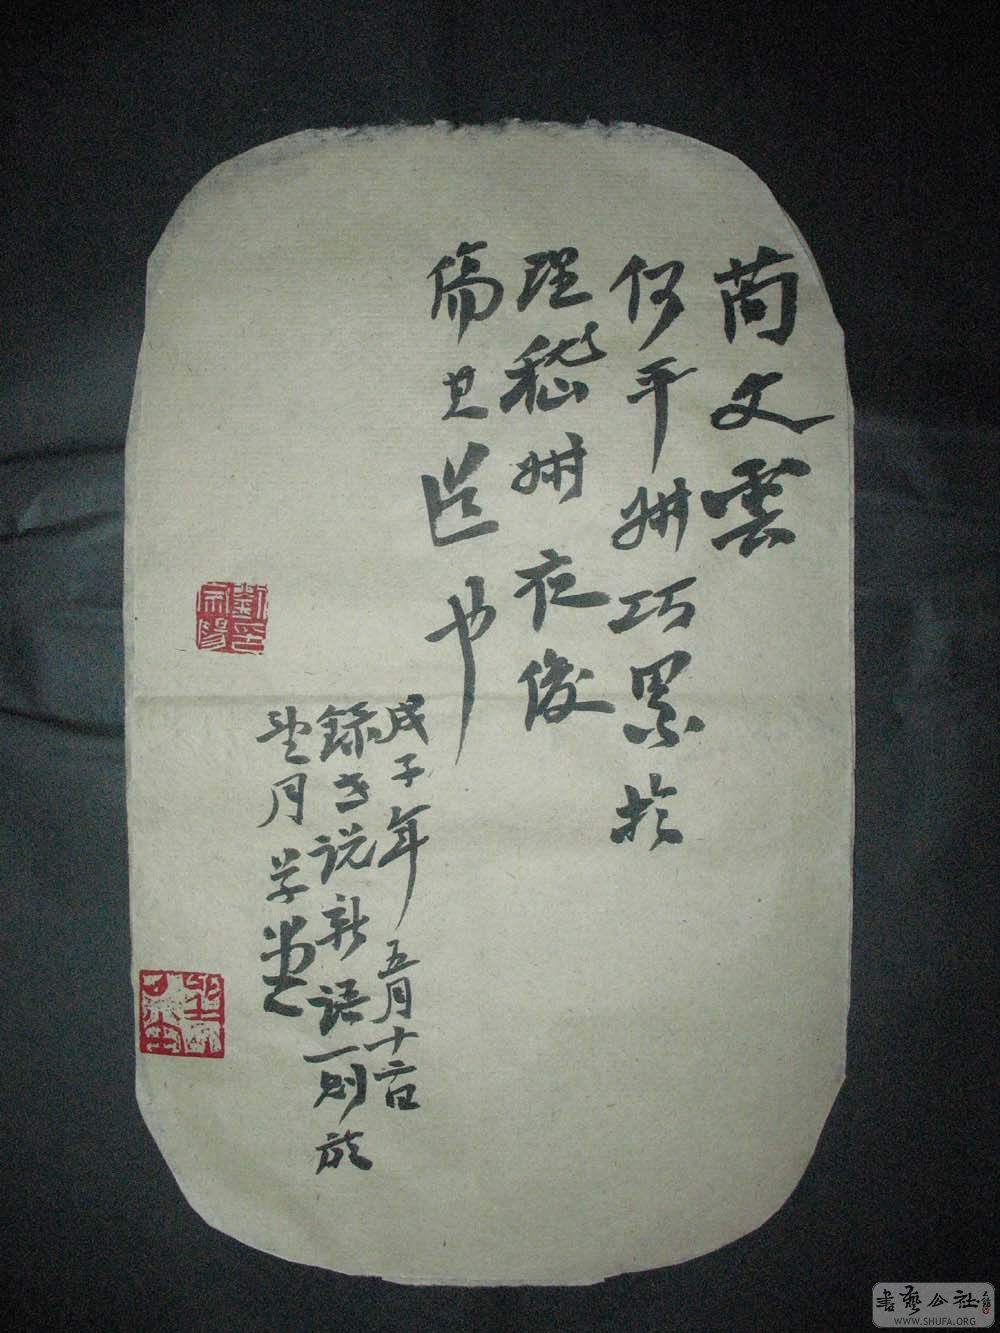 简文雲
何平叔巧累於
理嵇叔夜俊
傷其道也
戊子年五月十六日
錄世说新語一則於
望月学堂
書藝公社
WWW.SHUFA.ORG